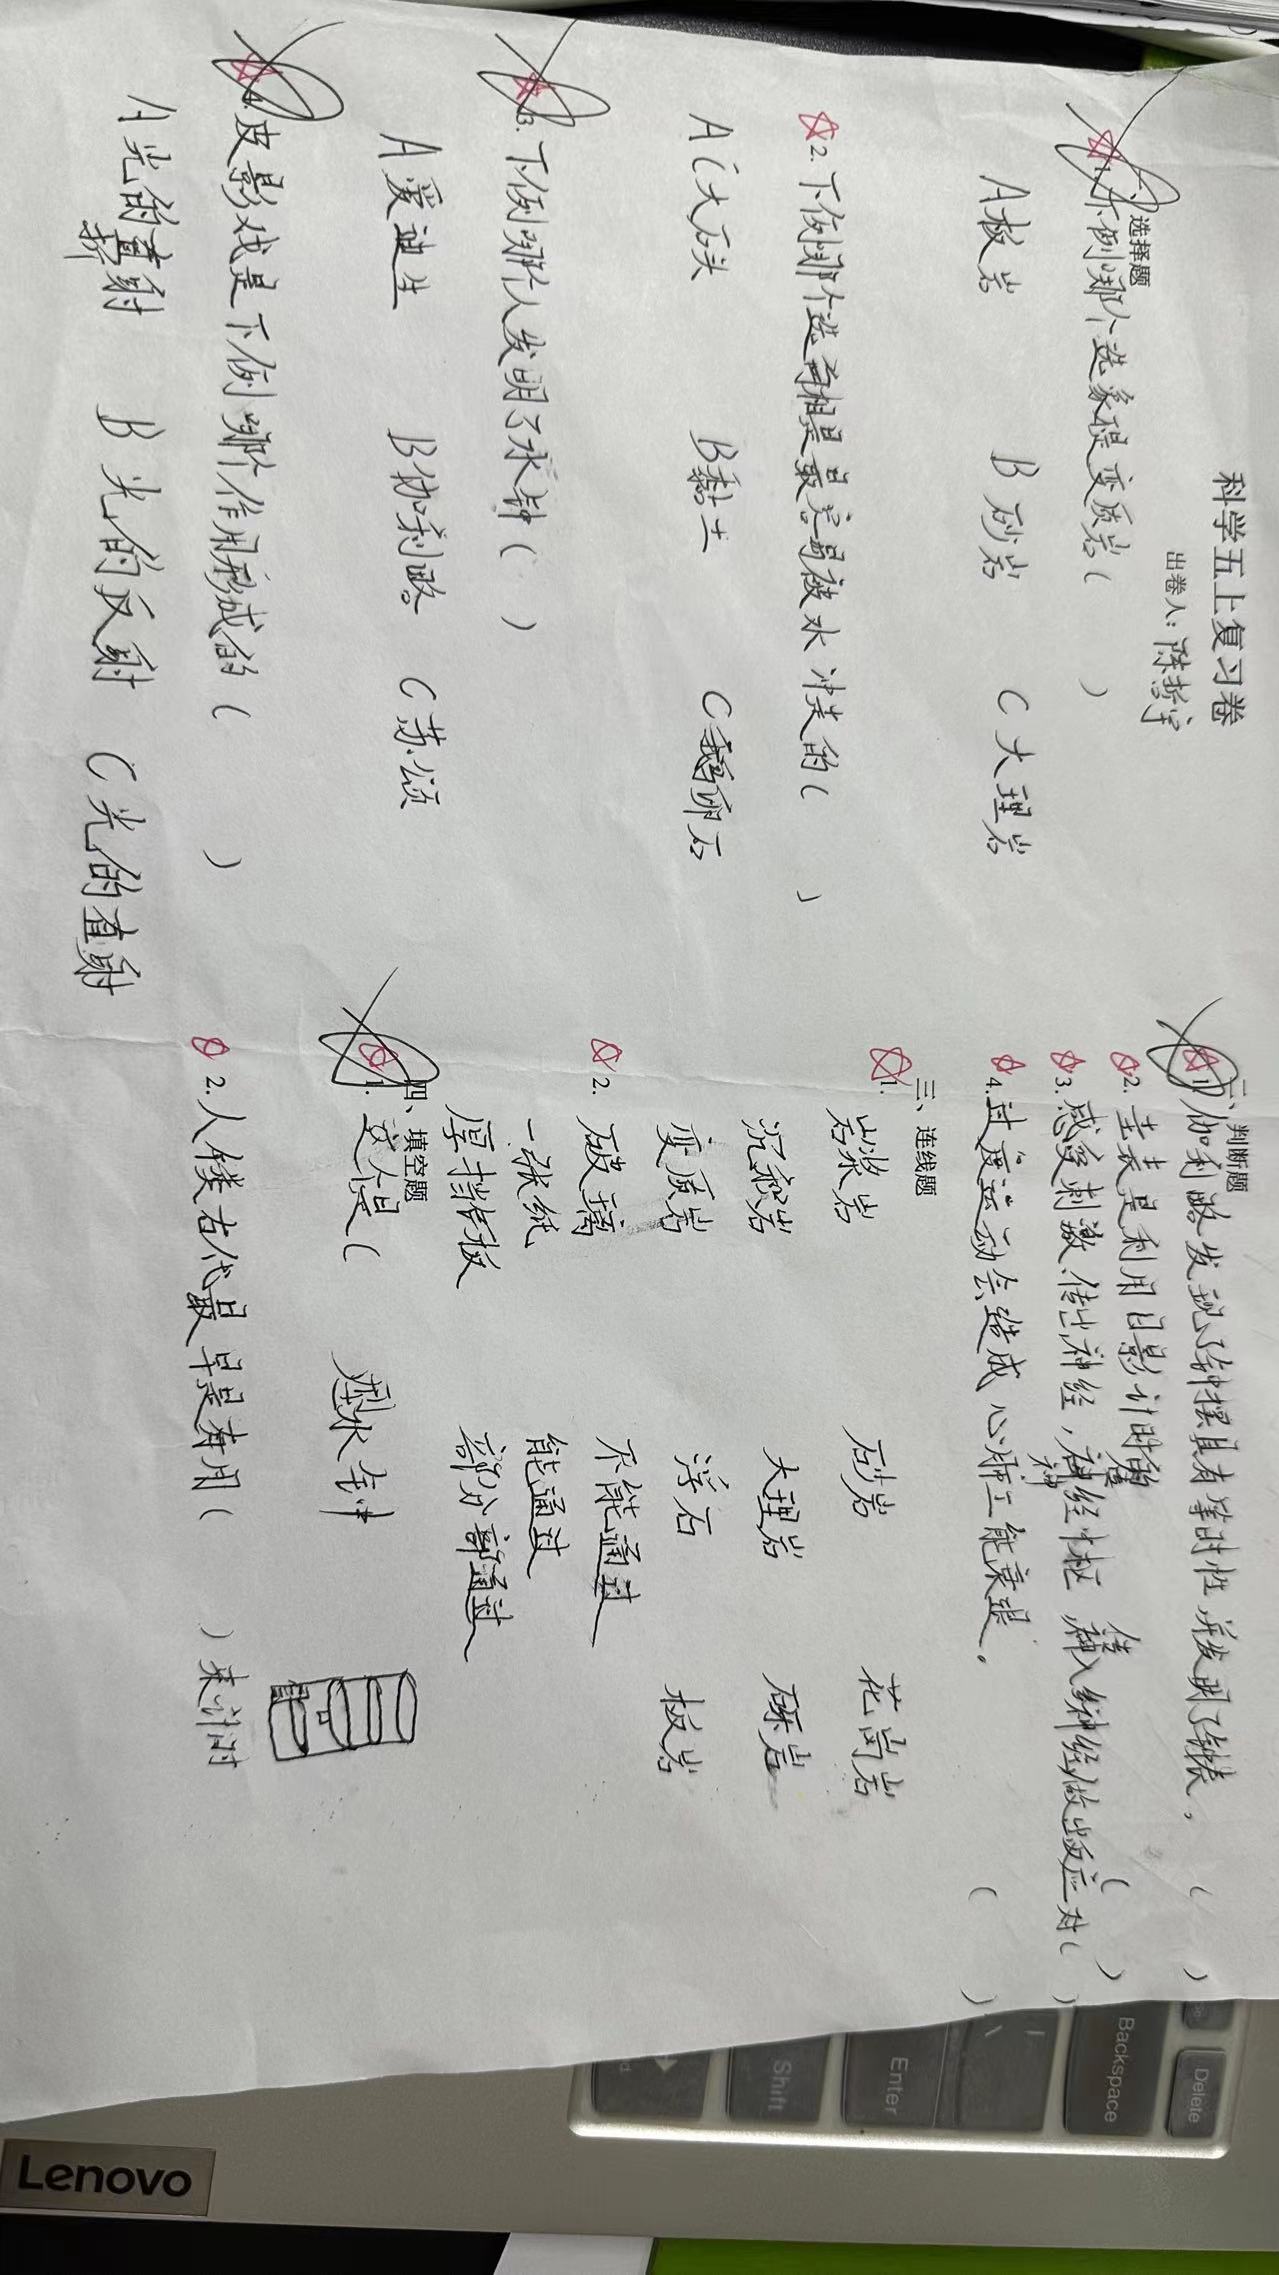 科学五上复习卷
出卷人：陈哲宇
一、选择题
1.下例哪个选象是变质岩（ ）
A板岩 B砂岩 C大理岩
2.下例哪个选项是最容易被水冲走的（ ）
A大石头 B黏土 C鹅卵石
3.下例哪个人发明了水钟（ ）
A爱迪生 B伽利略 C苏颂
4.皮影戏是下例哪个作用形成的（ ）
A光的折射 B光的反射 C光的直射
二、判断题
1.伽利略发现了钟摆具有等时性并发明了钟表，（ ）
2.圭表是利用日影计时的（ ）
3.感受刺激，传出神经，神经中枢 传入神经做出反应对（ ）
4.过度运动会造成心脏工能衰退。（ ）
三、连线题
1. 岩浆岩 砂岩 花岗岩
沉积岩 大理岩 砾岩
变质岩 浮石 板岩
2. 玻璃 不能通过
一张纸 能通过
厚挡板 部分部通过
四、填空题
1.这个是（ 型水钟
2.人类古代最早是有用（ ）来计时
Backspace
Delete
Enter
Shift
Lenovo